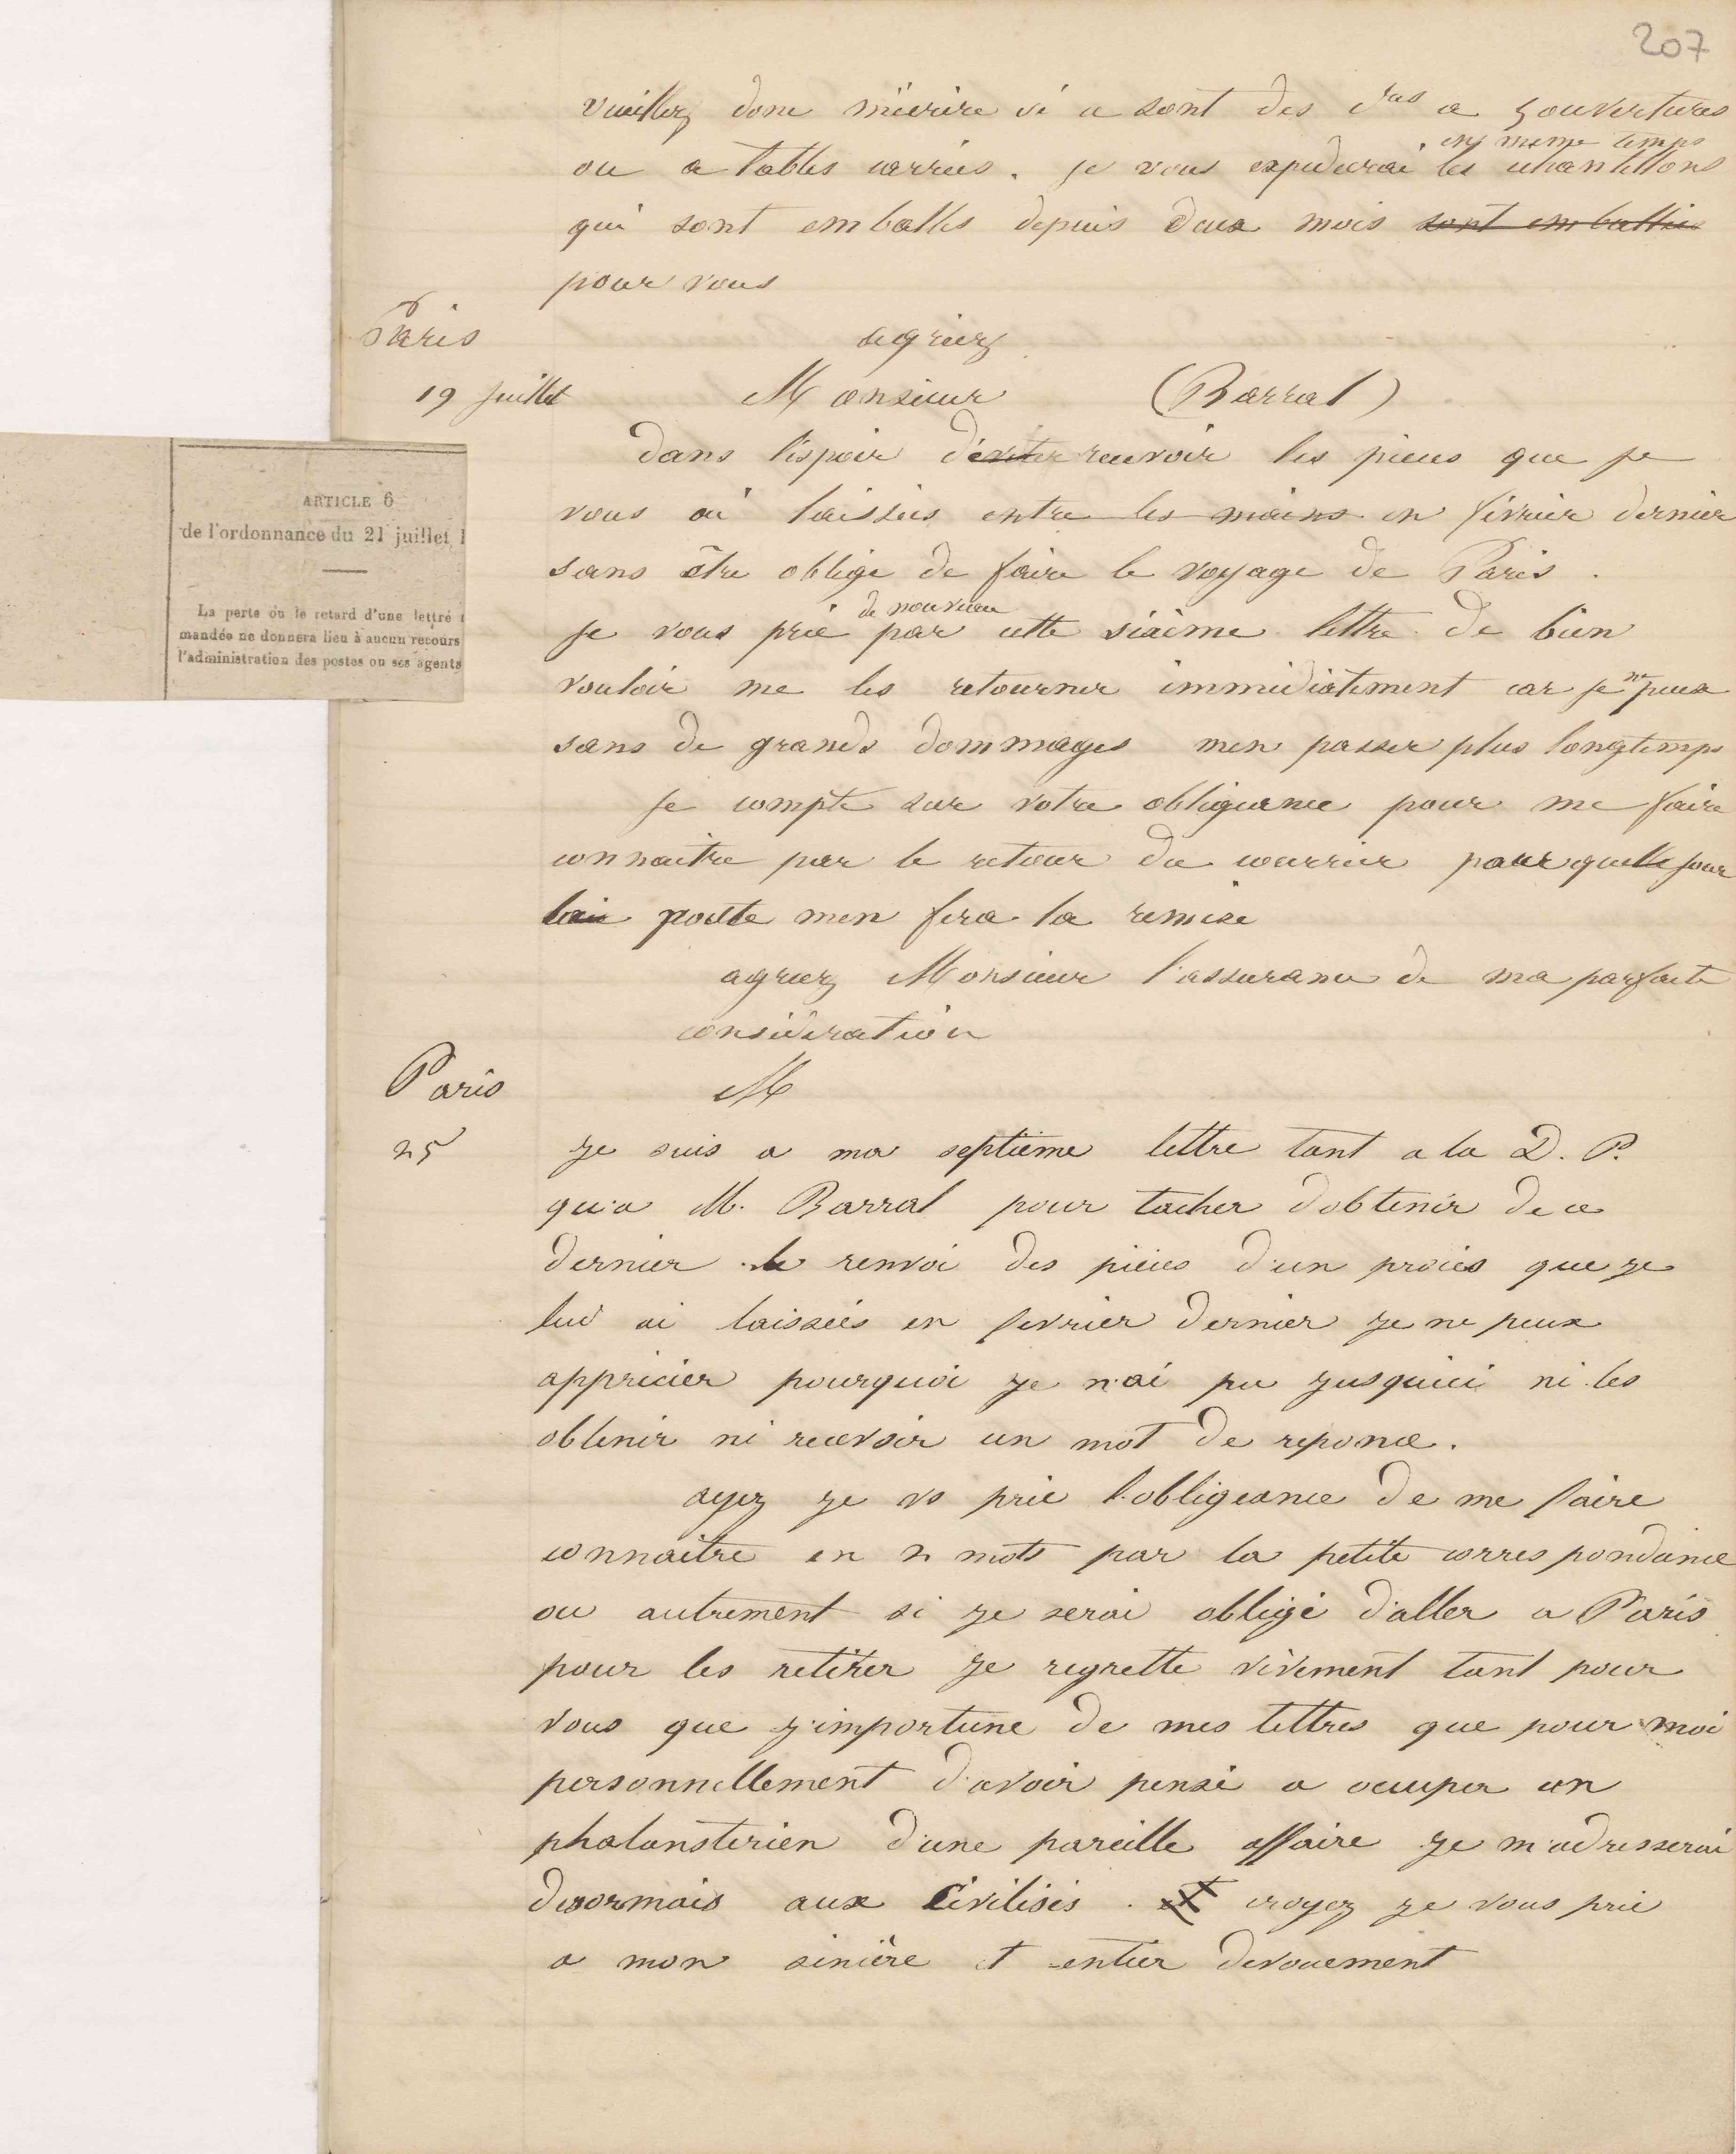 207
veuillez donc m'ecrire si ce sont des c^res a 5 ouvertures
ou a tables carrées. je vous expedierai les echantillons
en meme temps
qui sont emballés depuis deux mois sont emballés
pour vous
Paris
agriez
19 juillet Monsieur (Barral)
dans l'espoir d'éviter recevoir les pieces que je
vous ai laissées entre les mains en février dernier
sans être obligé de faire le voyage de Paris.
de nouveau
je vous prie par cette sixième lettre de bien
vouloir me les retourner immédiatement car je ne peux
sans de grands dommages men passer plus longtemps
je compte sur votre obligeance pour me faire
connaitre par le retour du courrier quelle jour
poste men fera la remise
agreez Monsieur l'assurance de ma parfaite
considération
Paris M
25 Je suis a ma septième lettre tant a la D. P.
qu'a M. Barral pour tacher d'obtenir de ce
dernier le renvoi des pièces d'un procès que je
lui ai laissées en fevrier dernier je ne peux
apprécier pourquoi je n'ai pu jusquici ni les
obtenir ni recevoir un mot de reponce.
ayez je vs prie l'obligeance de me faire
connaitre en 2 mots par la petite correspondance
ou autrement si je serai obligé d'aller a Paris
pour les retirer je regrette vivement tant pour
vous que j'importune de mes lettres que pour moi
personnellement d'avoir pensé a occuper un
phalansterien d'une pareille affaire je m'adresserai
desormais aux Civilisés. et croyez je vous prie
a mon sincère et entier devouement
ARTICLE 6
de l'ordonnance du 21 juillet 1
La perte ou le retard d'une lettre
mandée ne donnera lieu à aucun recours
l'administration des postes ou ses agents